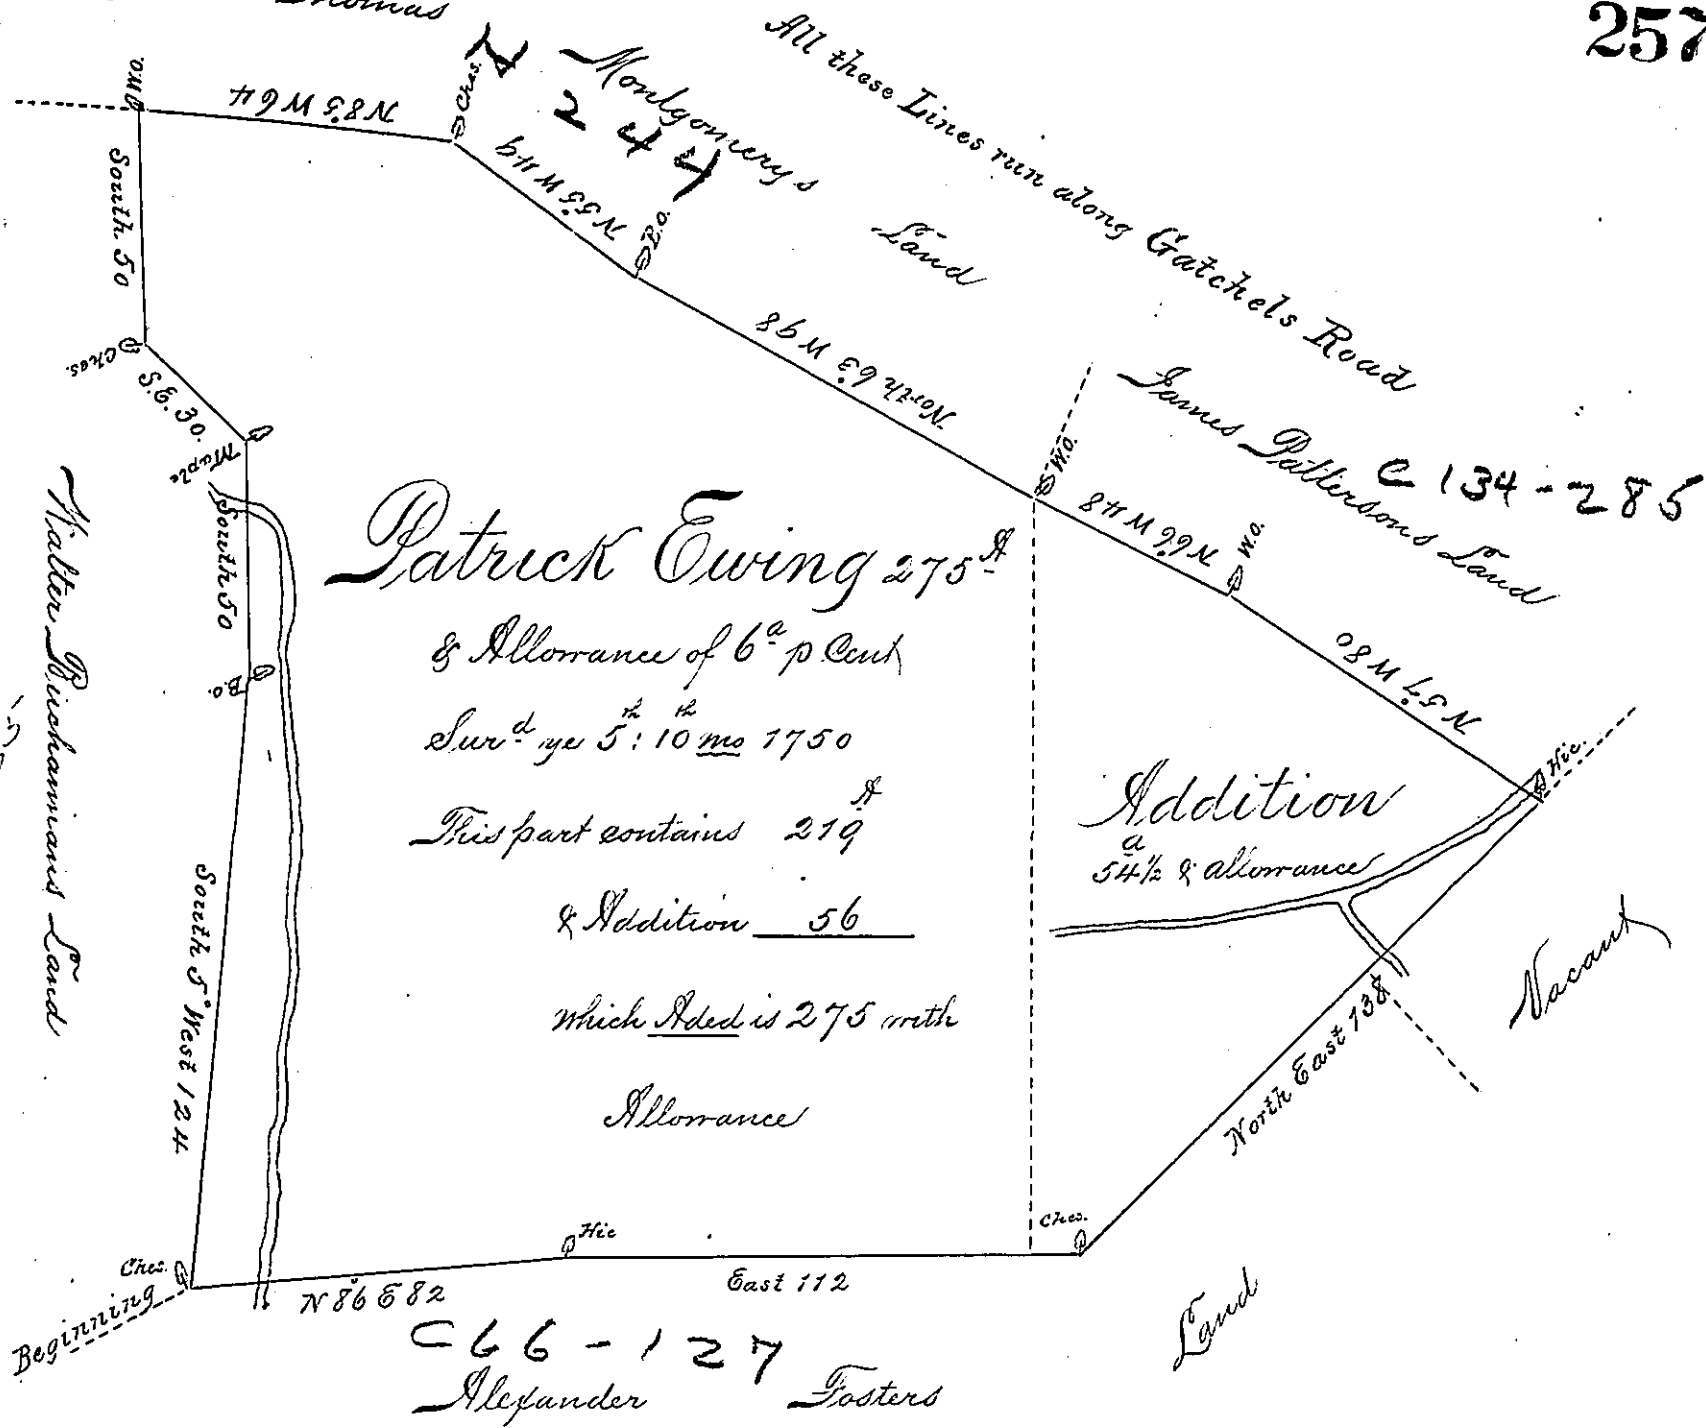 257
Thomas
Montgomerys
Land
244
All these Lines run along Gatchels Road
James Pattersons Land
C 134-285
W.O.
N 85 W 64
Ches.
N 55 W 49
B.O.
North 63 W 98
W.O.
N 66 W 48
W.O.
N 57 W 80
Hic.
South 50
Ches.
S.E. 30.
Maple
South 50
B.O.
South 5° West 124
Walter Buchannans Land
Patrick Ewing 275 A
& Allowance of 6 a p Cent
Sur d ye 5 th : 10 th mo 1750
This part contains 219 A
& Addition 56
which Aded is 275 with
Allowance
Addition
54 1/2 a & allowance
North East 138
Vacant
Land
Ches.
Beginning
N 86 E 82
Hic
East 112
Ches.
C66-127
Alexander Fosters